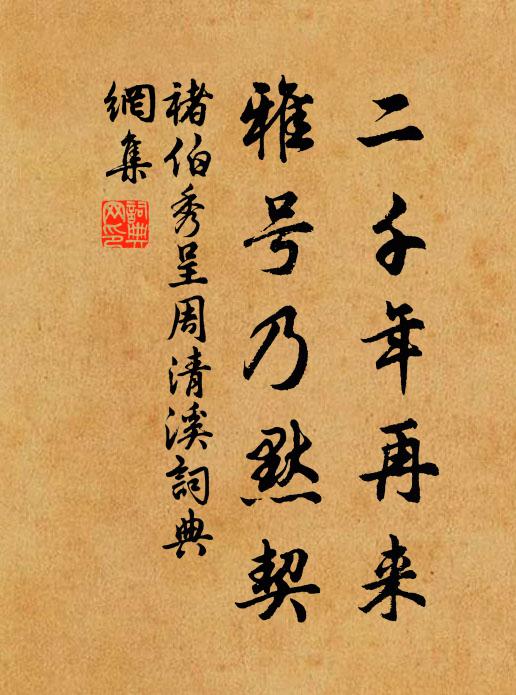 二千年再来
雅号乃默契
褚伯秀呈周清溪詞典
網集
詞典網印